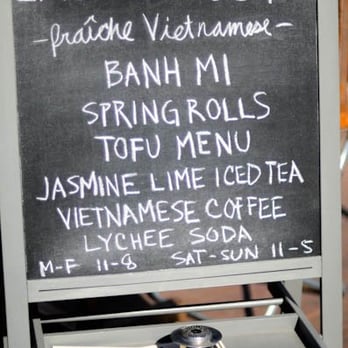 -fraîche Vietnamese-
BANH MI
SPRING ROLLS
TOFU MENU
JASMINE LIME ICED TEA
VIETNAMESE COFFEE
LYCHEE SODA
M-F 11-8 SAT-SUN 11-5